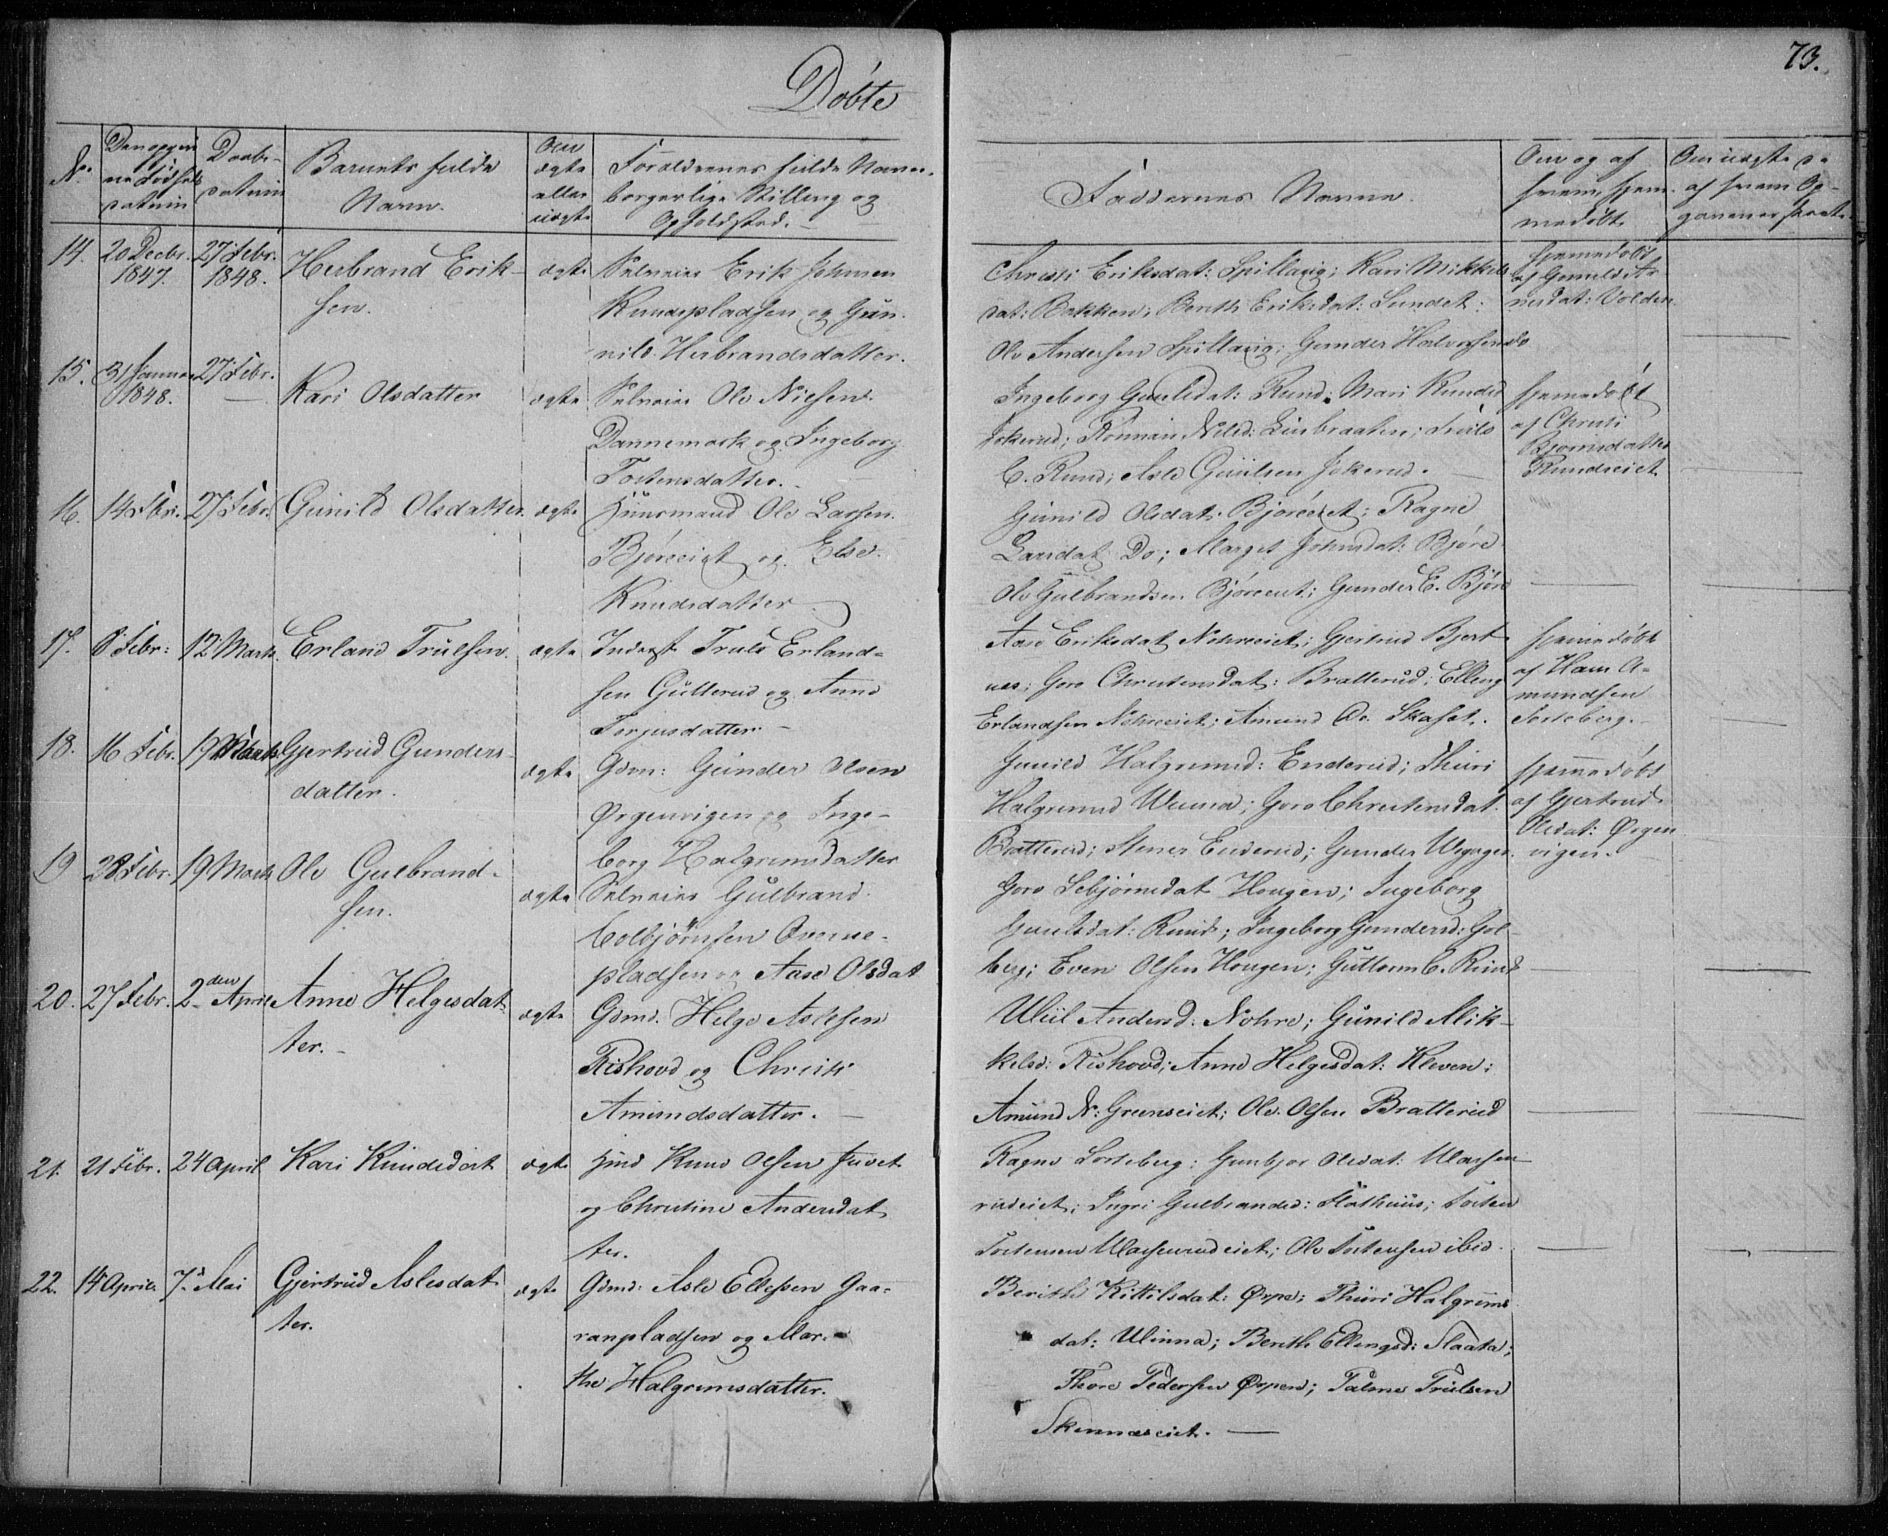 73.
Døbte
No.
Den opgivne Fødselsdatum
Daabsdatum
Barnets fulde Navn.
Om ægte eller uægte
Forældrenes fulde Navne, borgerlige Stilling og Opholdssted.
Faddernes Navne.
Om og af hvem hjemmedøbt
Om uægte da af hvem Opgaven er skeet.
14. 20 Decbr. 1847. 27 Febr. 1848. Herbrand Erik-
sen.
ægte
Selveier Erik Johnsen
Rundepladsen og Gun-
nild Herbrandsdatter.
Christi Eriksdat: Spillavig; Kari Mikkels
dat: Bakken; Berith Eriksdat: Sundet;
Ole Andersen Spillavig; Gunder Halvorsen do
hjemmedøbt
af Gunild Ar-
nesdat: Volden
15. 31 Januar 1848. 27 Febr. Kari Olsdatter
ægte
Selveier Ole Nielsen
Dannemark og Ingeborg
Tostensdatter.
Ingeborg Gulsdat: Rund; Mari Knudsd
Jokerud; Nilsd: Liebraaten; Truls
C. Rund; Asle Gulsen Jokerud.
hjemmedøbt
af Christi
Bjørnsdatter
Rundseiet
16. 14 Febr. 27 Febr. Gunild Olsdatter.
ægte
Huusmand Ole Larsen
Bjøreeiet og Else
Knudsdatter
Gunild Olsdat: Bjøreeiet; Ragne
Larsdat Do; Marget Johnsdat: Bjøre
Ole Gulbrandsen Bjøreeiet; Gunder E. Bjøre
17. 8 Febr: 12 Marts. Erland Trulsen.
ægte
Inderst Truls Erland-
sen Gutterud og Anne
Torjusdatter.
Aase Eriksdat Nohreeiet; Gjertrud Bjert
nes; Goro Christensdat: Bratterud; Elling
Erlandsen Nohreeiet; Amund Do. Skafet.
hjemmedøbt
af Hans A-
mundsen
Sorteberg.
18. 16 Febr. 19 Marts Gjertrud Gunders-
datter.
ægte
Gdm: Gunder Olsen
Ørgenvigen og Inge-
borg Halgrimsdatter
Gunild Halgrimsd: Enderud; Thuri
Halgrimsd Winna; Goro Christensdat.
Bratterud; Stener Enderud; Gunder
hjemmedøbt
af Gjertrud
Olsdat: Ørgen
vigen.
19 28 Febr. 19 Marts Ole Gulbrand-
sen.
ægte
Selveier Gulbrand
Colbjørnsen Overne-
pladsen og Aase Olsdat
Goro Sebjørnsdat Hougen; Ingeborg
Gulsdat: Rund; Ingeborg Gundersd: Gol-
berg; Even Olsen Hougen; Guttorm C. Rund
20. 27 Febr. 2den April Anne Helgesdat-
ter.
ægte
Gdmd. Helge Aslesen
Rishovd og Christi
Amundsdatter.
Uliil Andersd: Nohre; Gunild Mik-
kelsd: Rishovd; Anne Helgesdat: Kleven;
Amund N: Grønseiet; Ole Olsen Bratterud
21. 21 Febr. 24 April Kari Knudsdat
ægte
Hmd Knud Olsen Juvet
og Christine Andersdat
ter.
Ragne Sorteberg; Gunbjor Olsdat: Ulachen-
rudeiet; Ingri Gulbrandsd: Flathuus; Tosten
Tostensen Ulachenrudeiet; Ole Tostensen ibid.
22. 14 April 7d Mai Gjertrud Aslesdat
ter.
ægte
Gdmd: Asle Ellefsen Gaa-
ranpladsen og Mar-
the Halgrimsdatter.
Berith Kittilsdat: Ørpe; Thuri Halgrims
dat: Ulinna; Berith Ellingsd: Slaata;
Thore Pedersen Ørpen; Palme Trulsen
Skinnæseiet.